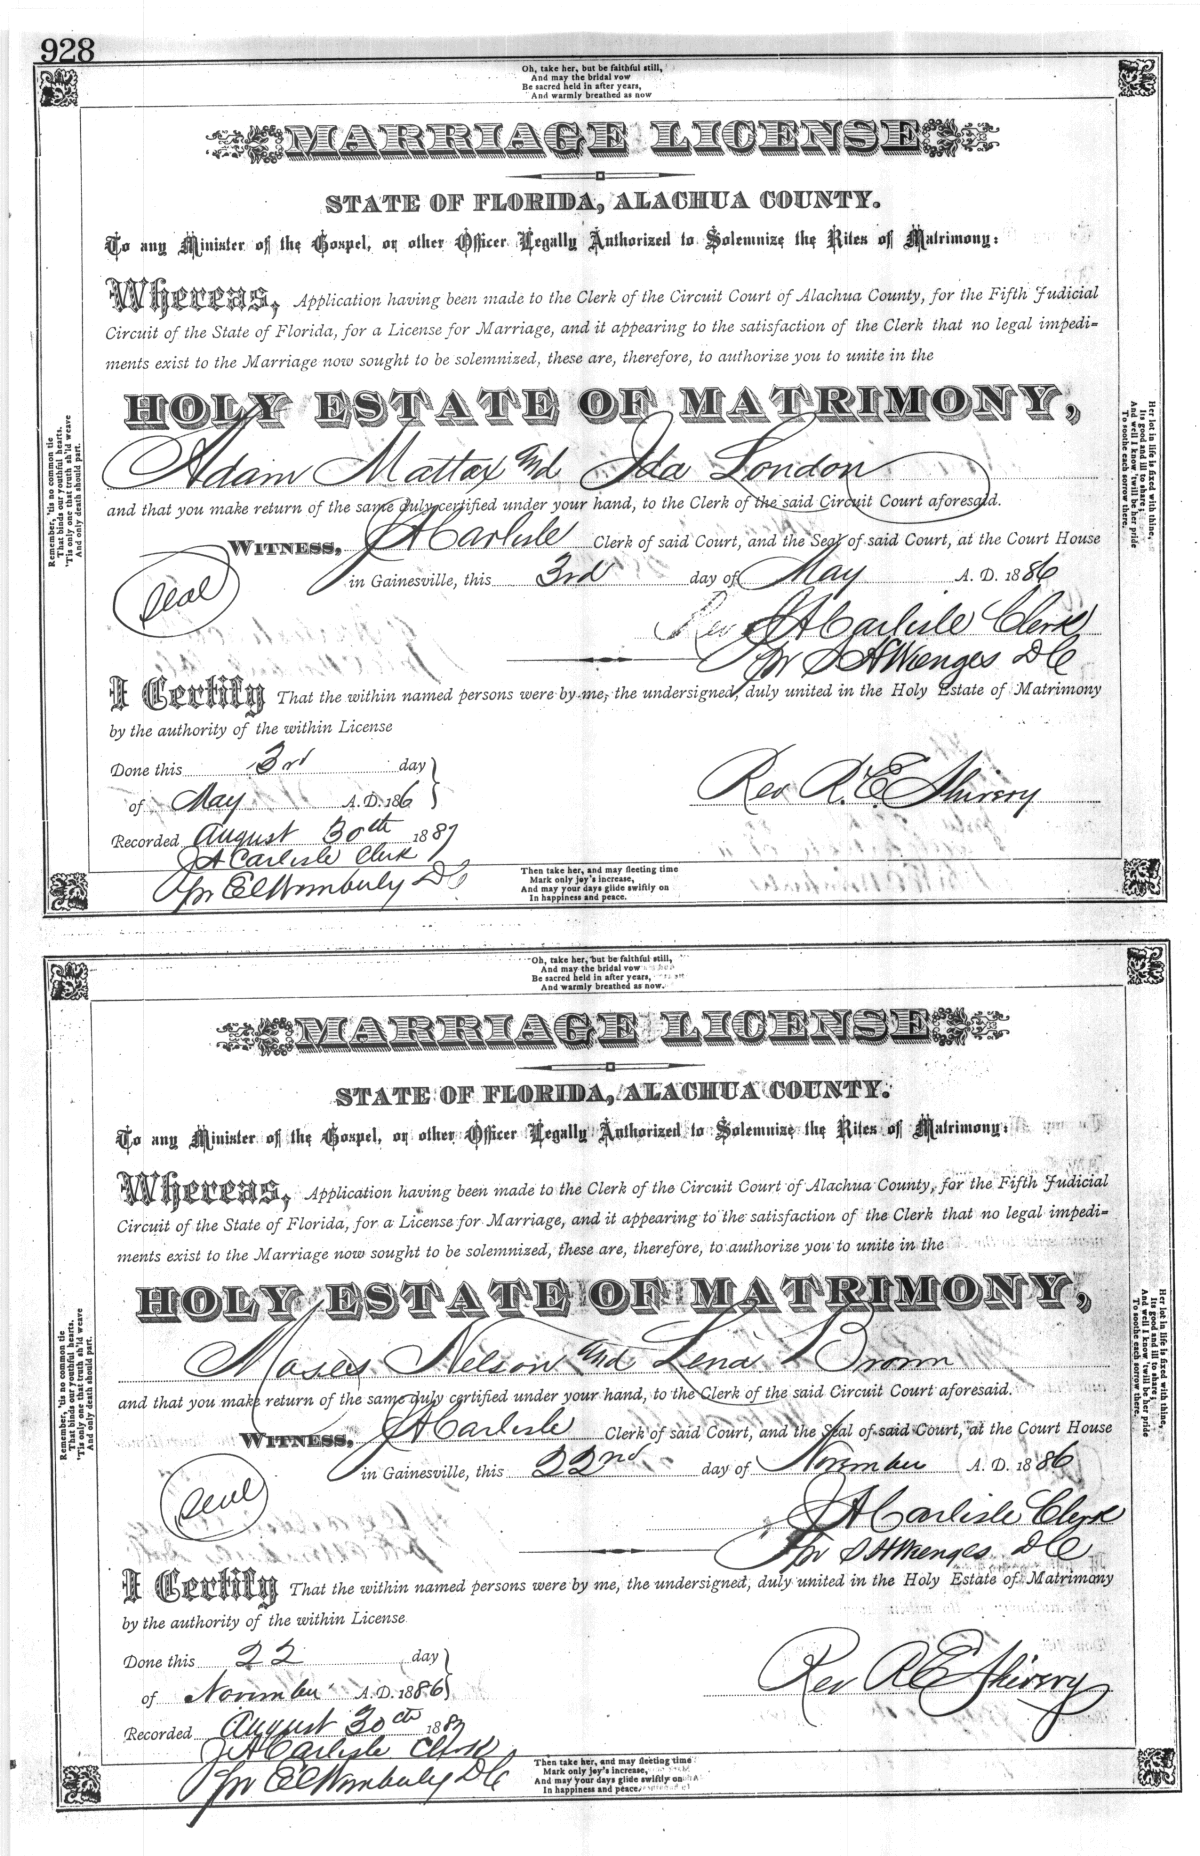 928
Oh, take her, but be faithful still,
And may the bridal vow
Be sacred held in after years,
And warmly breathed as now
MARRIAGE LICENSE
STATE OF FLORIDA, ALACHUA COUNTY.
To any Minister of the Gospel, or other Officer Legally Authorized to Solemnize the Rites of Matrimony:
Whereas, Application having been made to the Clerk of the Circuit Court of Alachua County, for the Fifth Judicial
Circuit of the State of Florida, for a License for Marriage, and it appearing to the satisfaction of the Clerk that no legal impedi-
ments exist to the Marriage now sought to be solemnized, these are, therefore, to authorize you to unite in the
HOLY ESTATE OF MATRIMONY,
Adam Mattox and Ida London
and that you make return of the same duly certified under your hand, to the Clerk of the said Circuit Court aforesaid.
WITNESS, J A Carlisle Clerk of said Court, and the Seal of said Court, at the Court House
in Gainesville, this 3rd day of May A. D. 1886
Seal
Rev J A Carlisle Clerk
pr S H Wienges D C
I Certify That the within named persons were by me, the undersigned, duly united in the Holy Estate of Matrimony
by the authority of the within License
Done this 3rd day
of May A. D. 186
Rev R. E. Shivery
Recorded August 30th 1887
J A Carlisle Clerk
pr E C Wimberly D C
Remember, 'tis no common tie
That binds our youthful hearts.
'Tis only one that truth sh'ld weave
And only death should part.
Her lot in life is fixed with thine,
Its good and ill to share;
And well I know 'twill be her pride
To soothe each sorrow there.
Then take her, and may fleeting time
Mark only joy's increase,
And may your days glide swiftly on
In happiness and peace.
Oh, take her, but be faithful still,
And may the bridal vow
Be sacred held in after years,
And warmly breathed as now.
MARRIAGE LICENSE
STATE OF FLORIDA, ALACHUA COUNTY.
To any Minister of the Gospel, or other Officer Legally Authorized to Solemnize the Rites of Matrimony:
Whereas, Application having been made to the Clerk of the Circuit Court of Alachua County, for the Fifth Judicial
Circuit of the State of Florida, for a License for Marriage, and it appearing to the satisfaction of the Clerk that no legal impedi-
ments exist to the Marriage now sought to be solemnized, these are, therefore, to authorize you to unite in the
HOLY ESTATE OF MATRIMONY,
Moses Nelson and Lena Brown
and that you make return of the same duly certified under your hand, to the Clerk of the said Circuit Court aforesaid.
WITNESS, J A Carlisle Clerk of said Court, and the Seal of said Court, at the Court House
in Gainesville, this 22nd day of November A. D. 1886
Seal
J A Carlisle Clerk
pr S H Wienges D C
I Certify That the within named persons were by me, the undersigned, duly united in the Holy Estate of Matrimony
by the authority of the within License
Done this 22 day
of November A. D. 1886
Rev R E Shivery
Recorded August 30th 1887
J A Carlisle Clerk
pr E C Wimberly D C
Remember, 'tis no common tie
That binds our youthful hearts.
'Tis only one that truth sh'ld weave
And only death should part.
Her lot in life is fixed with thine,
Its good and ill to share;
And well I know 'twill be her pride
To soothe each sorrow there.
Then take her, and may fleeting time
Mark only joy's increase,
And may your days glide swiftly on
In happiness and peace.